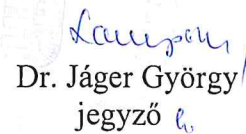 Dr. Jáger György
jegyző